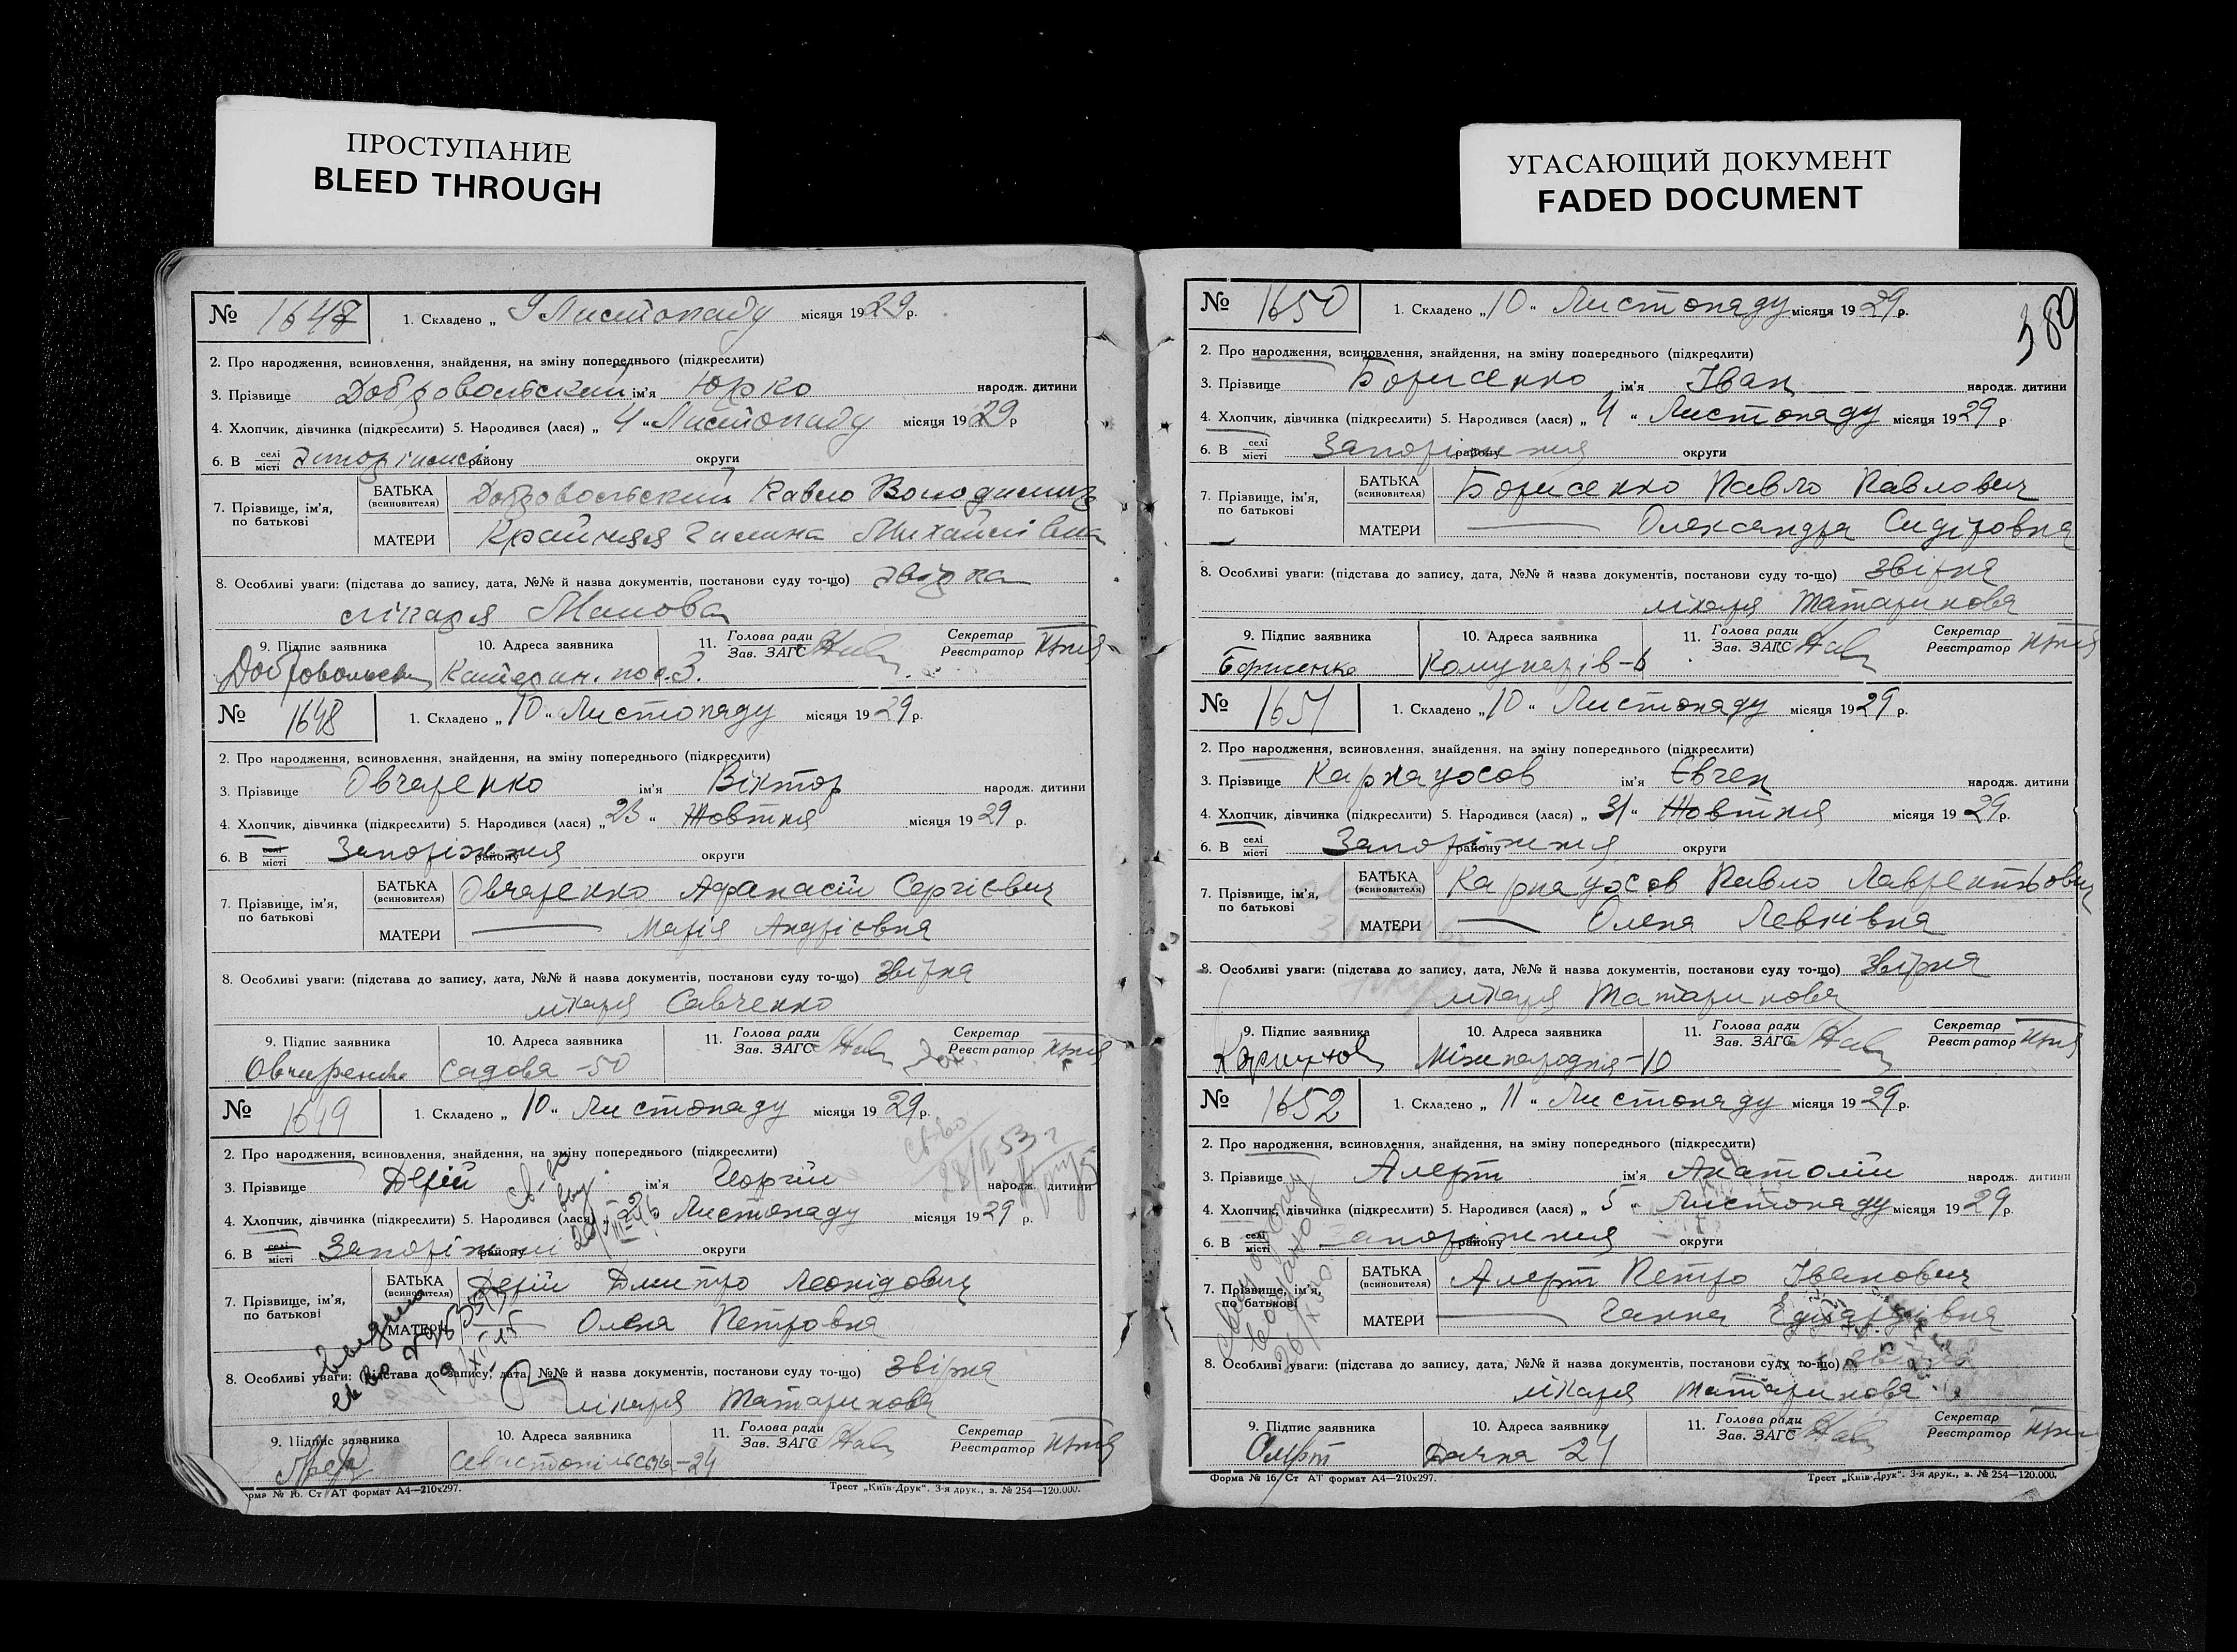 ПРОСТУПАНИЕ
BLEED THROUGH
УГАСАЮЩИЙ ДОКУМЕНТ
FADED DOCUMENT
№ 1647 1. Складено „ 9 Листопаду місяця 1929 р.
2. Про народження, всиновлення, знайдення, на зміну попереднього (підкреслити)
3. Прізвище Добровольський ім'я Юрко народж. дитини
4. Хлопчик, дівчинка (підкреслити) 5. Народився (лася) „ 4 “ Листопаду місяця 1929 р
6. В селі місті району округи
7. Прізвище, ім'я, по батькові
БАТЬКА (всиновителя) Добровольський Павло
МАТЕРИ Михайлівна
8. Особливі уваги: (підстава до запису, дата, №№ й назва документів, постанови суду то-що) звідка
лікаря
9. Підпис заявника 10. Адреса заявника 11. Голова ради Зав. ЗАГС Секретар Реєстратор
Катерин. пос. 3.
№ 1648 1. Складено „ 10 “ Листопаду місяця 1929 р.
2. Про народження, всиновлення, знайдення, на зміну попереднього (підкреслити)
3. Прізвище Овчаренко ім'я Віктор народж. дитини
4. Хлопчик, дівчинка (підкреслити) 5. Народився (лася) „ 23 “ Жовтня місяця 1929 р.
6. В селі місті Запоріжжя району округи
7. Прізвище, ім'я, по батькові
БАТЬКА (всиновителя) Овчаренко Афанасій Сергієвич
МАТЕРИ — Марія Андрієвна
8. Особливі уваги: (підстава до запису, дата, №№ й назва документів, постанови суду то-що) звідка
лікаря Савченко
9. Підпис заявника 10. Адреса заявника 11. Голова ради Зав. ЗАГС Секретар Реєстратор
Овчаренко Садова -50
№ 1649 1. Складено „ 10 “ Листопаду місяця 1929 р.
2. Про народження, всиновлення, знайдення, на зміну попереднього (підкреслити)
3. Прізвище Дерій ім'я Георгій народж. дитини
4. Хлопчик, дівчинка (підкреслити) 5. Народився (лася) „ 2 “ Листопаду місяця 1929 р.
6. В селі місті Запоріжжі району округи
7. Прізвище, ім'я, по батькові
БАТЬКА (всиновителя) Дерій Дмитро Леонідович
МАТЕРИ Олена Петровна
8. Особливі уваги: (підстава до запису, дата, №№ й назва документів, постанови суду то-що) звідка
лікаря Татаринова
9. Підпис заявника 10. Адреса заявника 11. Голова ради Зав. ЗАГС Секретар Реєстратор
Севастопільська-24
Форма № 16. Ст АТ формат А4—210х297. Трест „Київ-Друк“. 3-я друк., з. № 254—120.000.
380
№ 1650 1. Складено „ 10 “ Листопаду місяця 1929 р.
2. Про народження, всиновлення, знайдення, на зміну попереднього (підкреслити)
3. Прізвище Борисенко ім'я Іван народж. дитини
4. Хлопчик, дівчинка (підкреслити) 5. Народився (лася) „ 4 “ Листопаду місяця 1929 р
6. В селі місті Запоріжжя району округи
7. Прізвище, ім'я, по батькові
БАТЬКА (всиновителя) Борисенко Павло Павлович
МАТЕРИ — Олександра Сидоровна
8. Особливі уваги: (підстава до запису, дата, №№ й назва документів, постанови суду то-що) звідка
лікаря Татаринова
9. Підпис заявника 10. Адреса заявника 11. Голова ради Зав. ЗАГС Секретар Реєстратор
Борисенко Комунарів-6
№ 1651 1. Складено „ 10 “ Листопаду місяця 1929 р.
2. Про народження, всиновлення, знайдення, на зміну попереднього (підкреслити)
3. Прізвище Карнаухов ім'я Євген народж. дитини
4. Хлопчик, дівчинка (підкреслити) 5. Народився (лася) „ 31 “ Жовтня місяця 1929 р.
6. В селі місті Запоріжжя району округи
7. Прізвище, ім'я, по батькові
БАТЬКА (всиновителя) Карнаухов Павло Лаврентьович
МАТЕРИ — Олена Левківна
8. Особливі уваги: (підстава до запису, дата, №№ й назва документів, постанови суду то-що) звідка
лікаря Татаринова
9. Підпис заявника 10. Адреса заявника 11. Голова ради Зав. ЗАГС Секретар Реєстратор
Міжнародня-10
№ 1652 1. Складено „ 11 “ Листопаду місяця 1929 р.
2. Про народження, всиновлення, знайдення, на зміну попереднього (підкреслити)
3. Прізвище Алерт ім'я Анатолій народж. дитини
4. Хлопчик, дівчинка (підкреслити) 5. Народився (лася) „ 5 “ Листопаду місяця 1929 р.
6. В селі місті Запоріжжя району округи
7. Прізвище, ім'я, по батькові
БАТЬКА (всиновителя) Алерт Петро Іванович
МАТЕРИ — Ганна Едуардівна
8. Особливі уваги: (підстава до запису, дата, №№ й назва документів, постанови суду то-що)
лікаря Татаринова
9. Підпис заявника 10. Адреса заявника 11. Голова ради Зав. ЗАГС Секретар Реєстратор
Алерт Дачна 24
Форма № 16. Ст АТ формат А4—210х297. Трест „Київ-Друк“. 3-я друк., з. № 254—120.000.